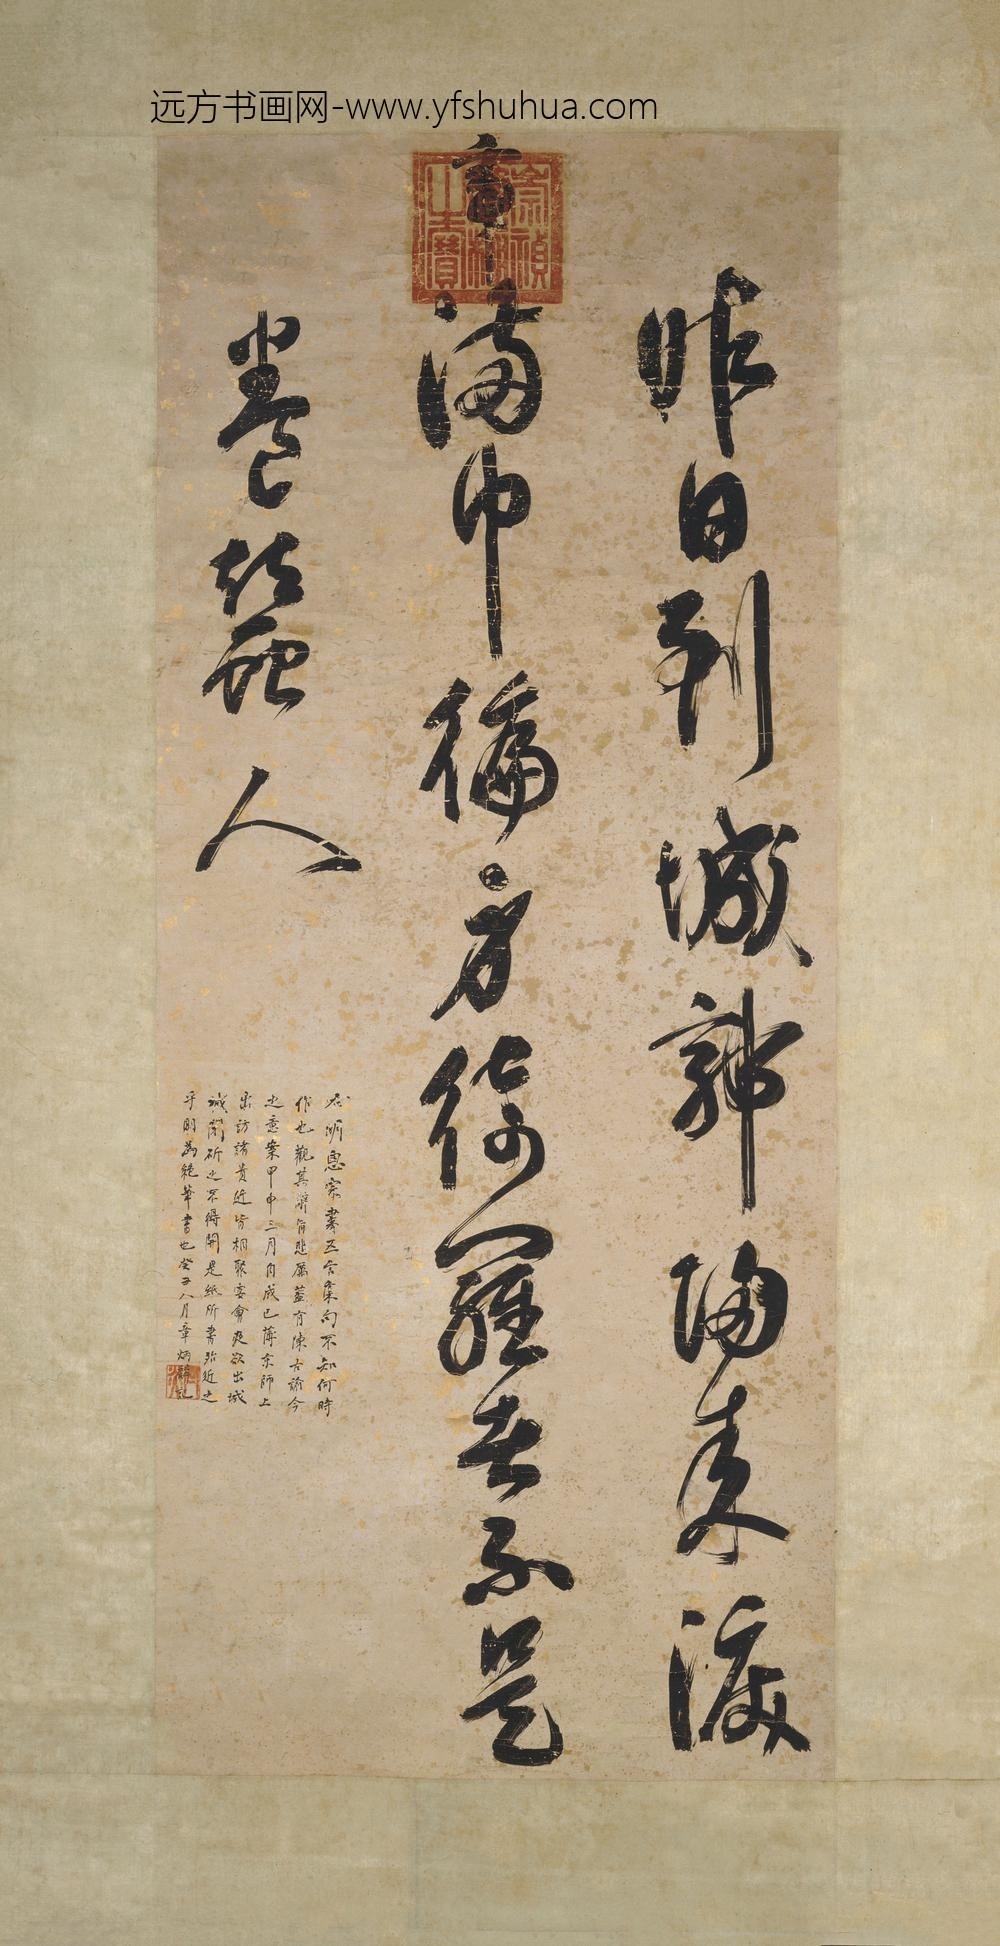 远方书画网-www.yfshuhua.com
昨日到城郭歸來淚
滿巾徧身綺羅者不是
養蠶人
崇禎
之寶
右明思宗書五言集句不知何時
作也觀其辭旨悲厲蓋有陳古諭今
之意案甲申三月自成已薄京師上
密訪諸貴近皆相聚宴會夜欲出城
城闉斫之不得開是紙所書殆近之
乎則為絕筆書也癸丑八月章炳麟記